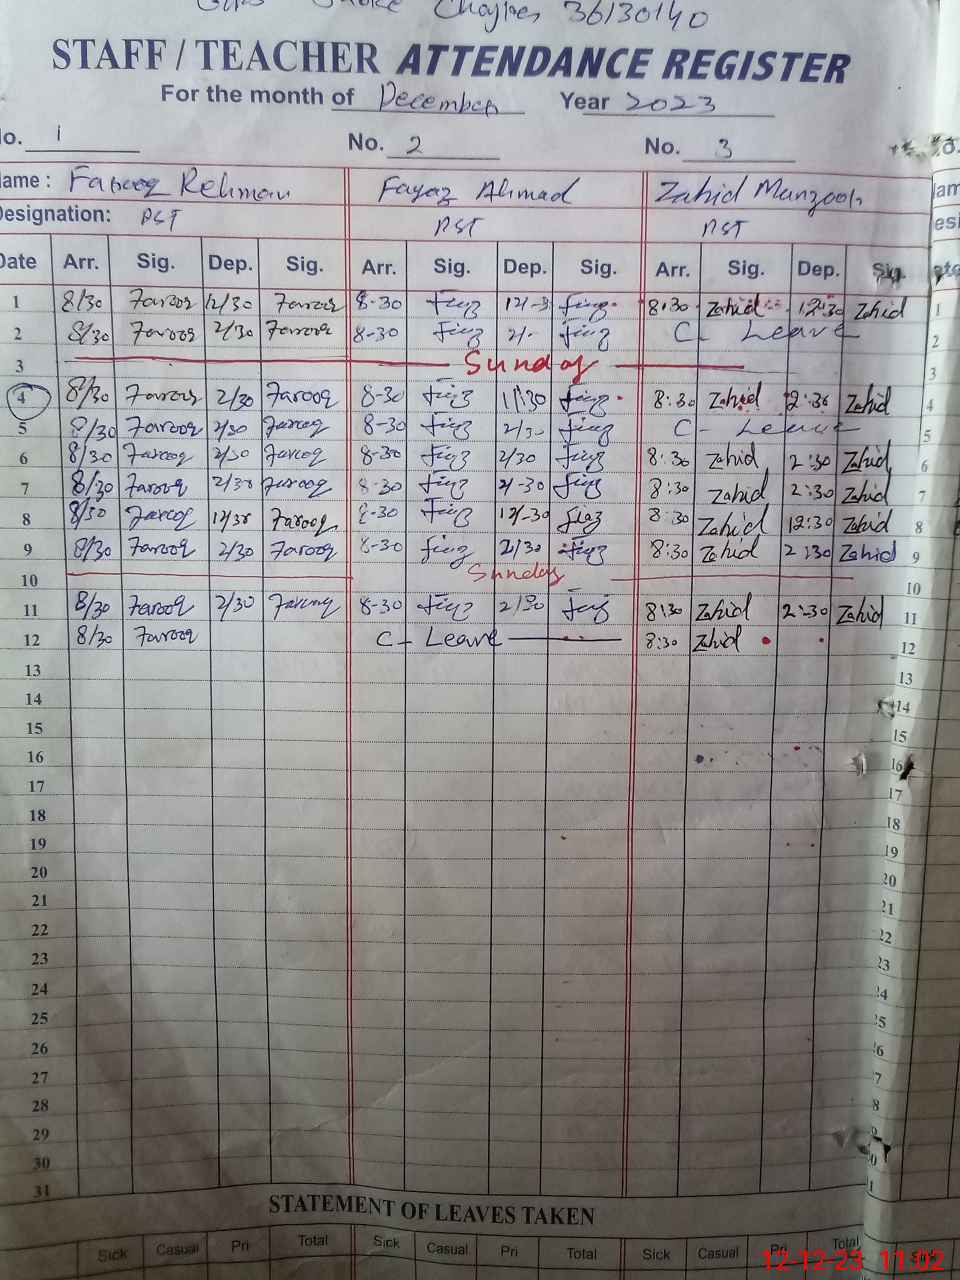 36130140
STAFF / TEACHER ATTENDANCE REGISTER
For the month of December Year 2023
No. 1 No. 2 No. 3
Name : Farooq Rehman Fayaz Ahmad Zahid Manzoor
Designation: PST PST PST
Date Arr. Sig. Dep. Sig. Arr. Sig. Dep. Sig. Arr. Sig. Dep. Sig.
1 8/30 Farooq 12/30 Farooq 8-30 Fiaz 12/-3 Fiaz 8:30 Zahid 12:30 Zahid 1
2 8/30 Farooq 2/30 Farooq 8-30 Fiaz 2/- Fiaz C- Leave 2
3 Sunday 3
4 8/30 Farooq 2/30 Farooq 8-30 Fiaz 11/30 Fiaz 8:30 Zahid 2:30 Zahid 4
5 8/30 Farooq 2/30 Farooq 8-30 Fiaz 2/30 Fiaz C- Leave 5
6 8/30 Farooq 2/30 Farooq 8-30 Fiaz 2/30 Fiaz 8:30 Zahid 2:30 Zahid 6
7 8/30 Farooq 2/30 Farooq 8-30 Fiaz 2/-30 Fiaz 8:30 Zahid 2:30 Zahid 7
8 8/30 Farooq 12/30 Farooq 8-30 Fiaz 12/-30 Fiaz 8:30 Zahid 12:30 Zahid 8
9 8/30 Farooq 2/30 Farooq 8-30 Fiaz 2/30 Fiaz 8:30 Zahid 2:30 Zahid 9
10 Sunday 10
11 8/30 Farooq 2/30 Farooq 8-30 Fiaz 2/30 Fiaz 8:30 Zahid 2:30 Zahid 11
12 8/30 Farooq C- Leave 8:30 Zahid 12
13 13
14 14
15 15
16 16
17 17
18 18
19 19
20 20
21 21
22 22
23 23
24 24
25 25
26 26
27 27
28 28
29
30
31
STATEMENT OF LEAVES TAKEN
Sick Casual Pri Total Sick Casual Pri Total Sick Casual Pri Total Sick
12-12-23 11:02